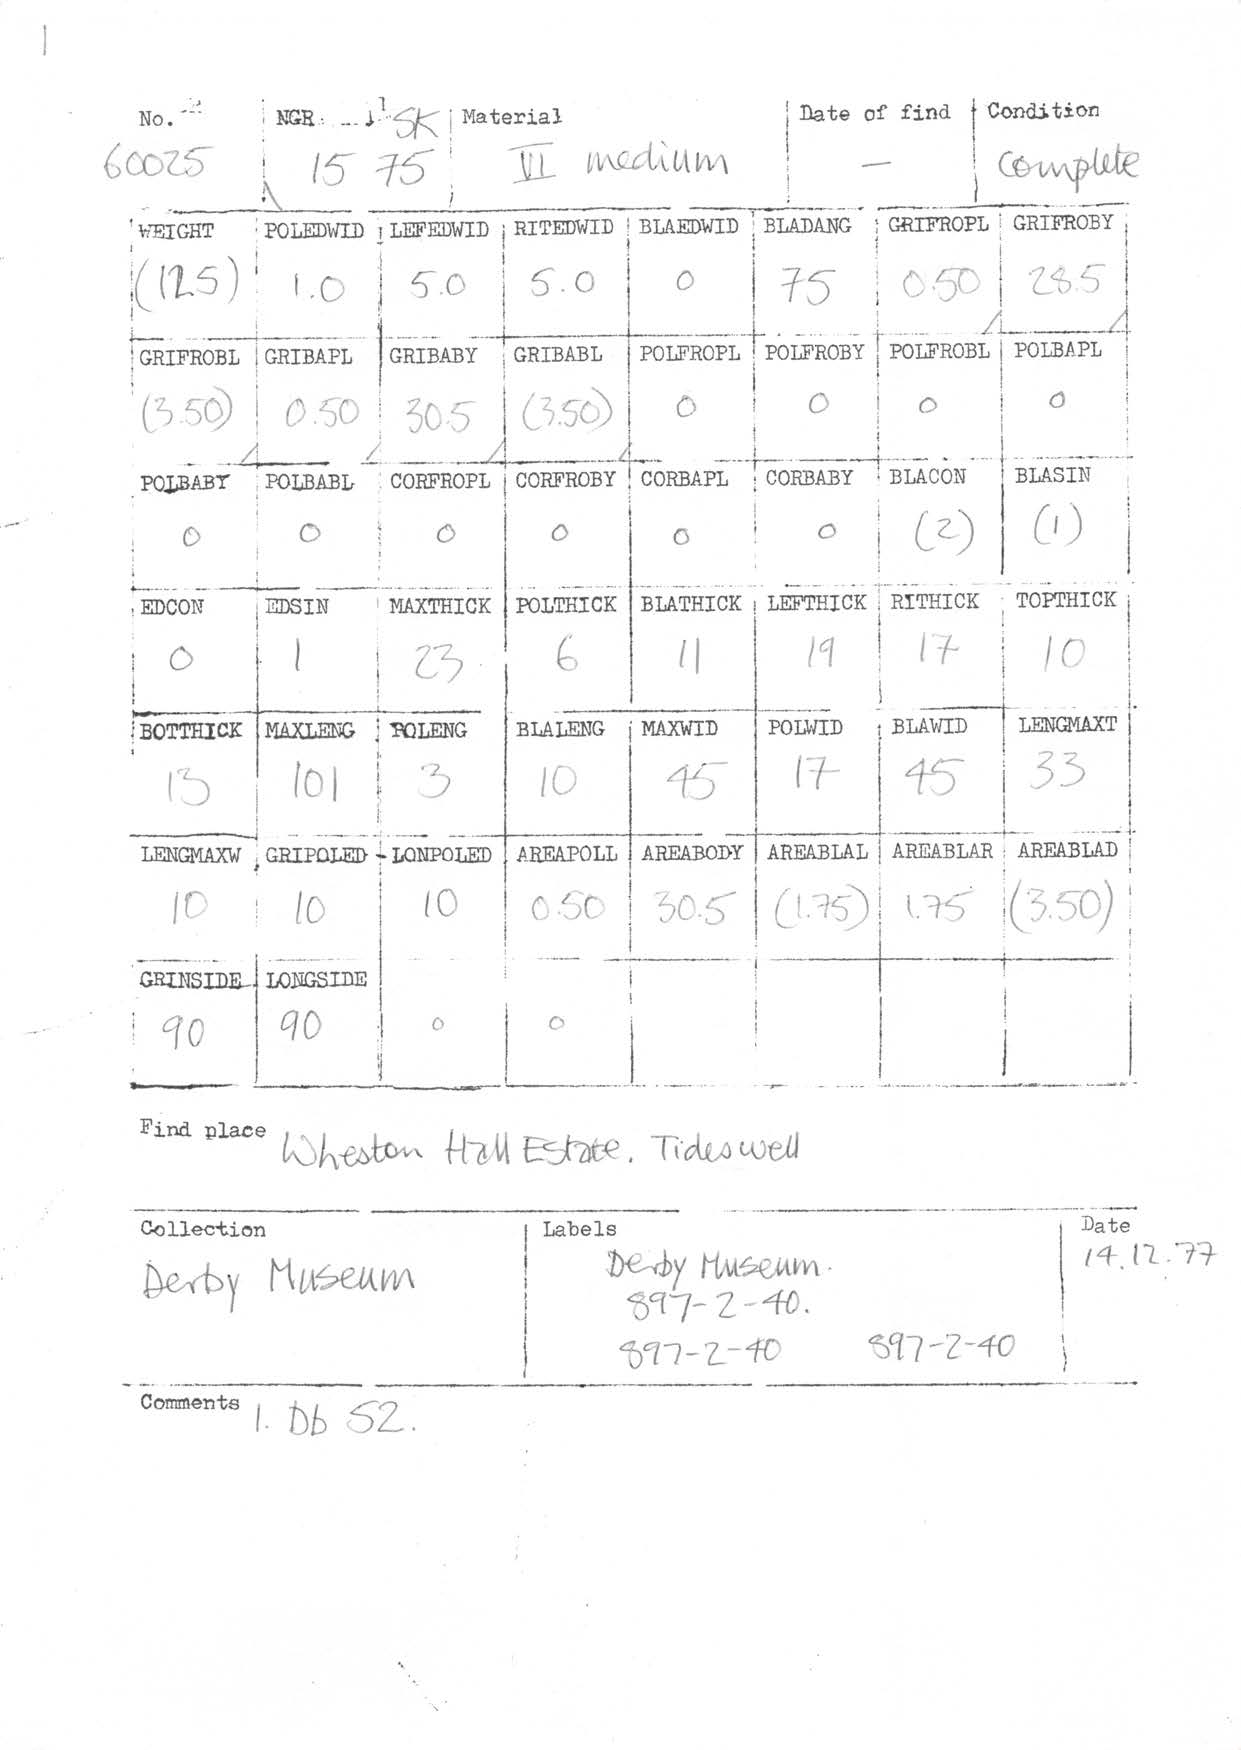 No. NGR SK Material Date of find Condition
60025 15 75 VI medium — complete
WEIGHT POLEDWID LEFEDWID RITEDWID BLAEDWID BLADANG GRIFROPL GRIFROBY
(125) 1.0 5.0 5.0 0 75 0.50 28.5
GRIFROBL GRIBAPL GRIBABY GRIBABL POLFROPL POLFROBY POLFROBL POLBAPL
(3.50) 0.50 30.5 (3.50) 0 0 0 0
POLBABY POLBABL CORFROPL CORFROBY CORBAPL CORBABY BLACON BLASIN
0 0 0 0 0 0 (2) (1)
EDCON EDSIN MAXTHICK POLTHICK BLATHICK LEFTHICK RITHICK TOPTHICK
0 1 23 6 11 19 17 10
BOTTHICK MAXLENG POLENG BLALENG MAXWID POLWID BLAWID LENGMAXT
13 101 3 10 45 17 45 33
LENGMAXW GRIPOLED LONPOLED AREAPOLL AREABODY AREABLAL AREABLAR AREABLAD
10 10 10 0.50 30.5 (1.75) 1.75 (3.50)
GRINSIDE LONGSIDE
90 90 0 0
Find place Wheston Hall Estate. Tideswell
Collection Labels Date
Derby Museum Derby Museum. 14.12.77
897-2-40.
897-2-40 897-2-40
Comments 1. Db 52.